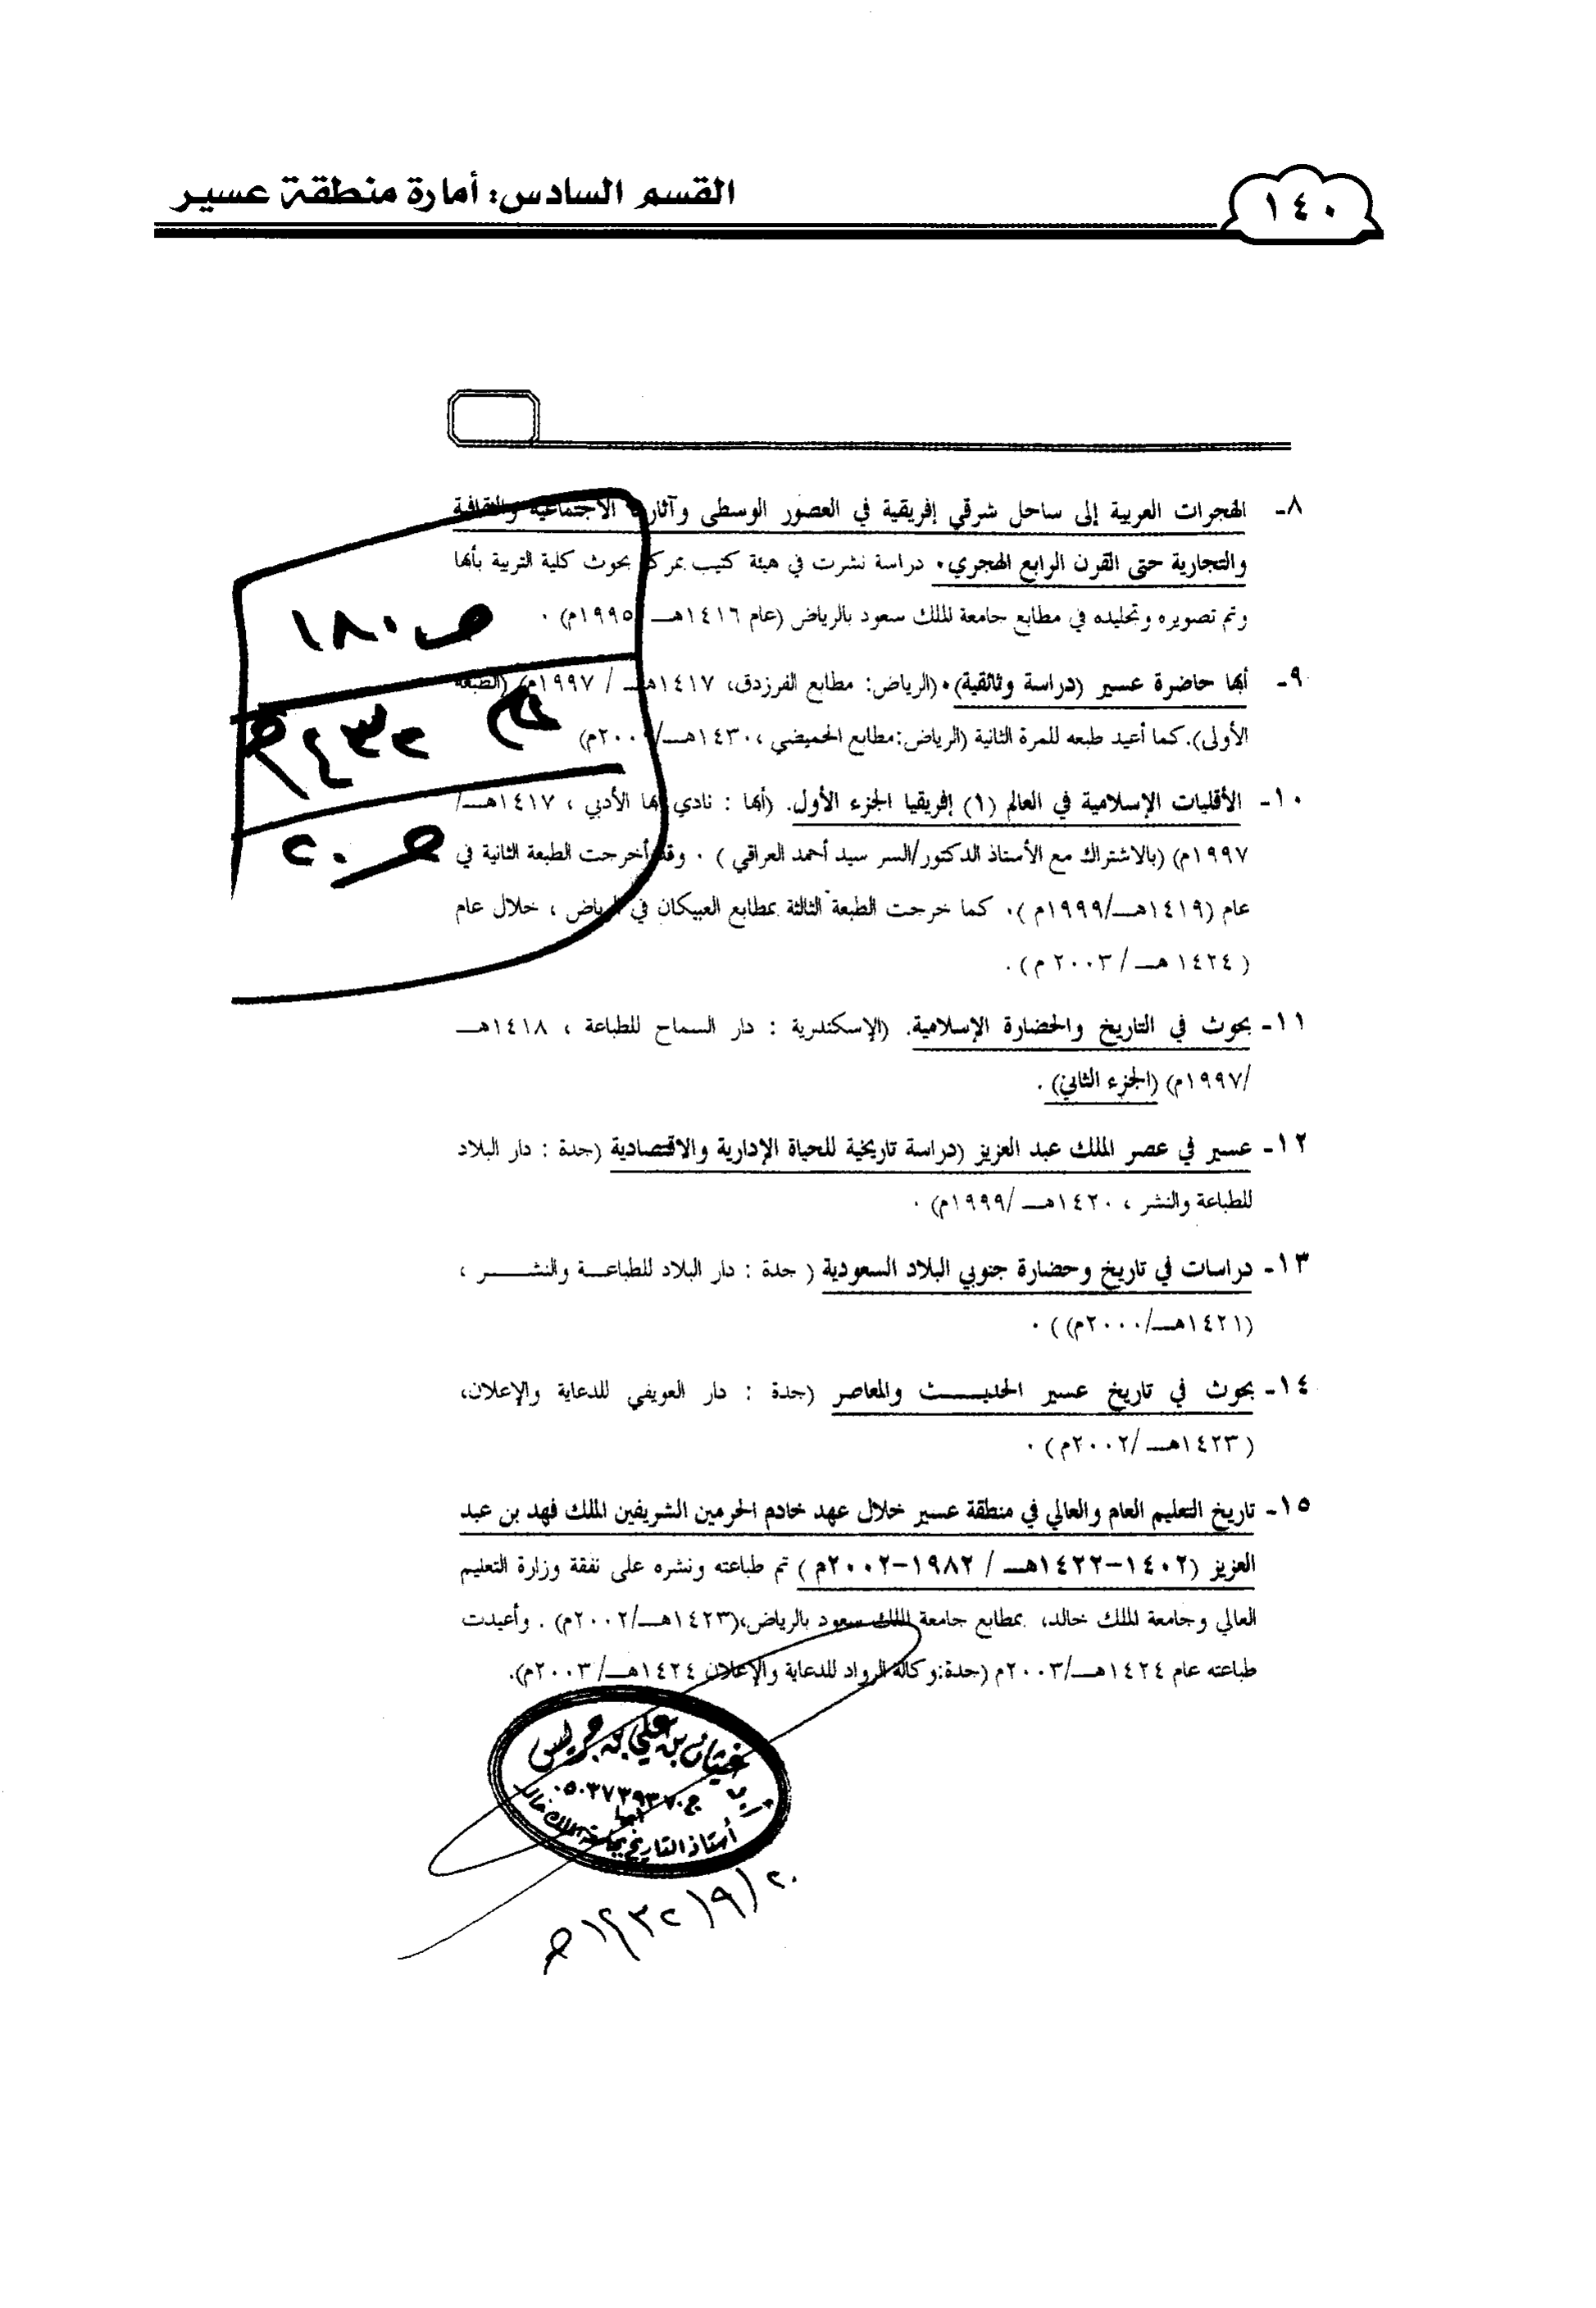 ١٤٠
القسم السادس: أمارة منطقة عسير
٨- الهجرات العربية إلى ساحل شرقي إفريقية في العصور الوسطى وآثارها الاجتماعية والثقافية
والتجارية حتى القرن الرابع الهجري. دراسة نشرت في هيئة كتيب بمركز بحوث كلية التربية بأبها
وتم تصويره وتجليده في مطابع جامعة الملك سعود بالرياض (عام ١٤١٦هـ /١٩٩٥م) .
٩- أبها حاضرة عسير (دراسة وثائقية).(الرياض: مطابع الفرزدق، ١٤١٧هـ / ١٩٩٧م) (الطبعة
الأولى).كما أعيد طبعه للمرة الثانية (الرياض:مطابع الحميضي ،١٤٣٠هـ/٢٠٠٩م)
١٠- الأقليات الإسلامية في العالم (١) إفريقيا الجزء الأول. (أبها : نادي أبها الأدبي ، ١٤١٧هـ/
١٩٩٧م) (بالاشتراك مع الأستاذ الدكتور/السر سيد أحمد العراقي ) . وقد أخرجت الطبعة الثانية في
عام (١٤١٩هـ/١٩٩٩م ). كما خرجت الطبعة الثالثة بمطابع العبيكان في الرياض ، خلال عام
( ١٤٢٤ هـ / ٢٠٠٣ م ) .
١١- بحوث في التاريخ والحضارة الإسلامية. (الإسكندرية : دار السماح للطباعة ، ١٤١٨هـ
/١٩٩٧م) (الجزء الثاني) .
١٢- عسير في عصر الملك عبد العزيز (دراسة تاريخية للحياة الإدارية والاقتصادية (جدة : دار البلاد
للطباعة والنشر ، ١٤٢٠هـ /١٩٩٩م) .
١٣- دراسات في تاريخ وحضارة جنوبي البلاد السعودية ( جدة : دار البلاد للطباعة والنشر ،
(١٤٢١هـ/٢٠٠٠م) ) .
١٤- بحوث في تاريخ عسير الحديث والمعاصر (جدة : دار العويفي للدعاية والإعلان،
( ١٤٢٣هـ /٢٠٠٢م ) .
١٥- تاريخ التعليم العام والعالي في منطقة عسير خلال عهد خادم الحرمين الشريفين الملك فهد بن عبد
العزيز (١٤٠٢-١٤٢٢هـ / ١٩٨٢-٢٠٠٢م ) تم طباعته ونشره على نفقة وزارة التعليم
العالي وجامعة الملك خالد، بمطابع جامعة الملك سعود بالرياض،(١٤٢٣هـ/٢٠٠٢م) . وأعيدت
طباعته عام ١٤٢٤هـ/٢٠٠٣م (جدة:وكالة الرواد للدعاية والإعلان ١٤٢٤هـ/٢٠٠٣م).
ص ١٨٠
عام ١٤٣٢هـ
ص ٢٠
غيثان بن علي بن جريس
ج.٠٥٠٣٧٣٩٣٧٠
أبها
أستاذ التاريخ بجامعة الملك خالد
٢٠/٩/١٤٣٢هـ